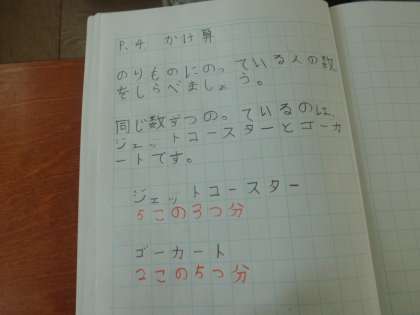 P.4 かけ算
のりものにのっている人の数
をしらべましょう。
同じ数ずつの。ているのは、
ジェットコースターとゴーカ
ートです。
ジェットコースター
5この3つ分
ゴーカート
2この5つ分